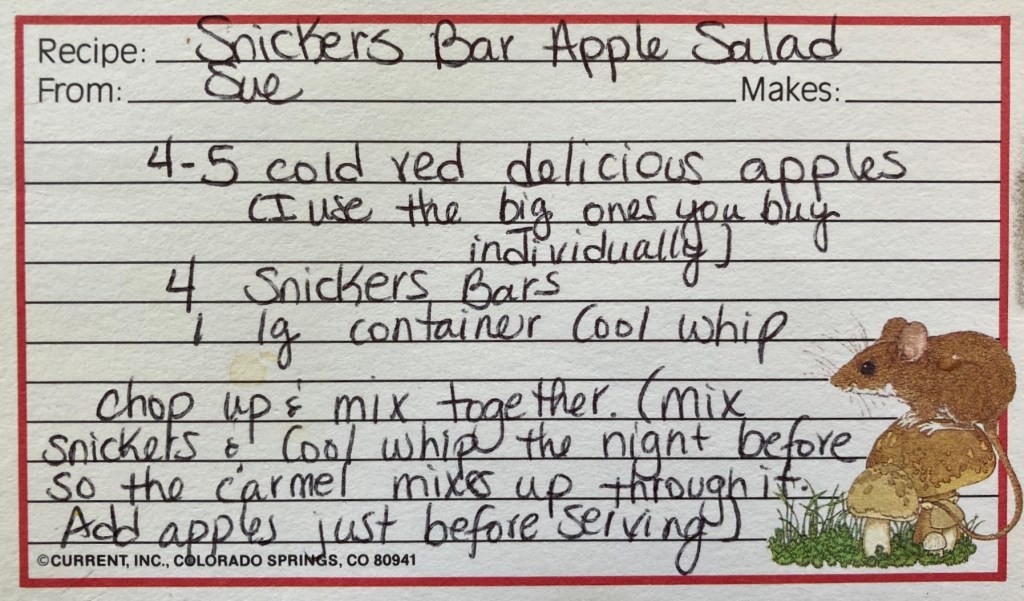 Recipe: Snickers Bar Apple Salad
From: Sue Makes:
4-5 cold red delicious apples
(I use the big ones you buy
individually)
4 Snickers Bars
1 lg container Cool whip
chop up & mix together. (mix
snickers & Cool whip the night before
so the carmel mixes up through it.
Add apples just before serving)
©CURRENT, INC., COLORADO SPRINGS, CO 80941